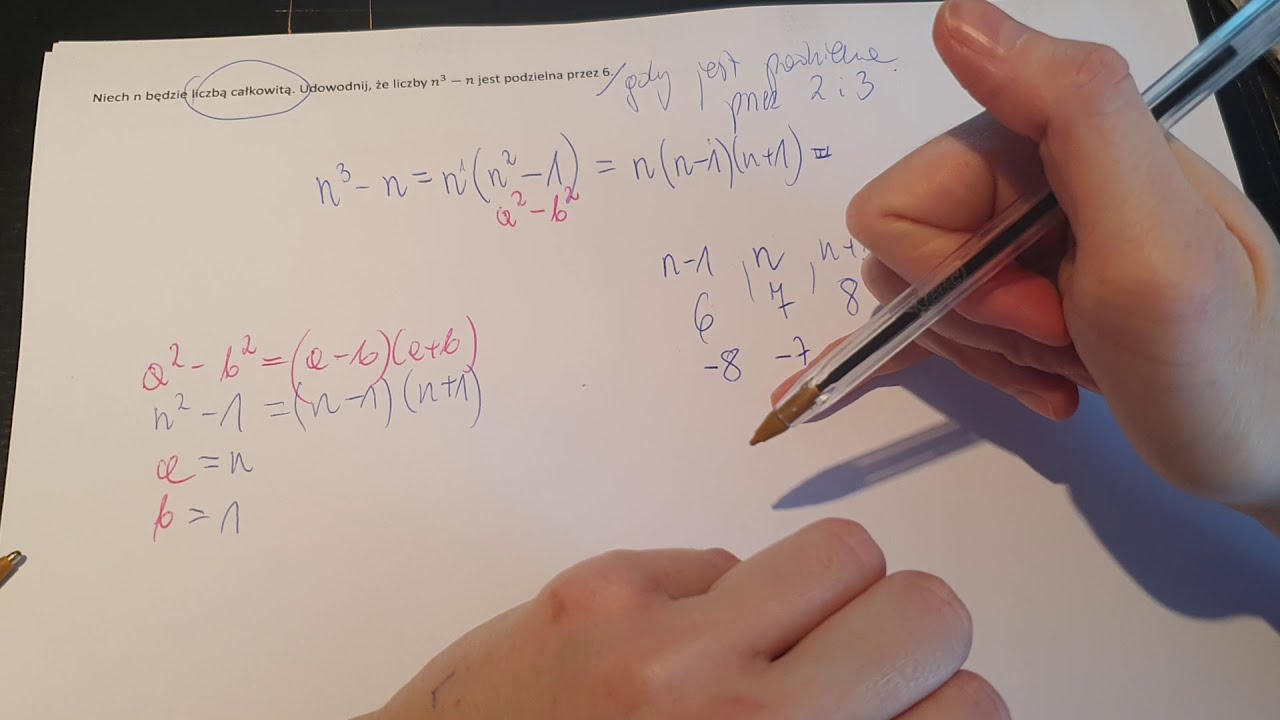 Niech n będzie liczbą całkowitą. Udowodnij, że liczby n³ − n jest podzielna przez 6.
gdy jest podzielne
przez 2 i 3
n³ - n = n (n² - 1) = n (n-1)(n+1) =
a² - b²
n-1 , n , n+
6 7 8
-8 -7
a² - b² = (a-b)(a+b)
n² - 1 = (n-1)(n+1)
a = n
b = 1